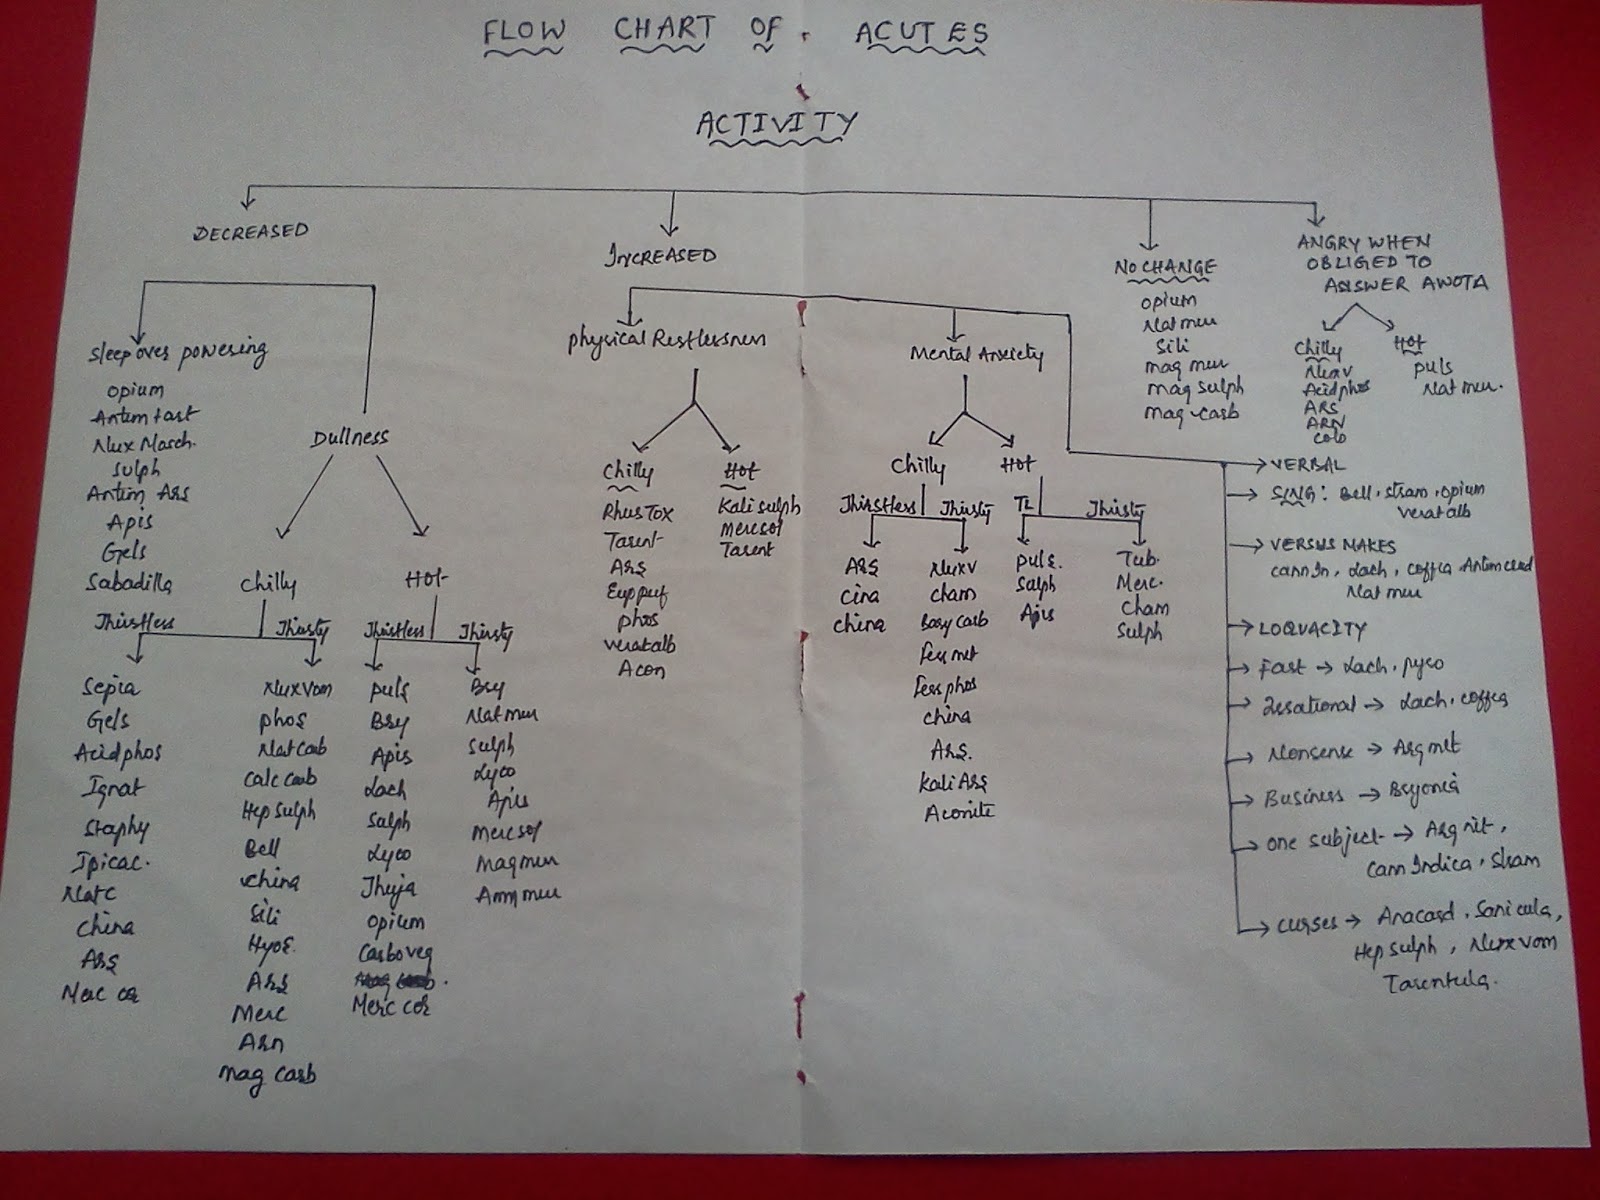 FLOW CHART OF ACUTES
ACTIVITY
DECREASED
Sleep over powering
opium
Antim tart
Nux Mosch.
Sulph
Antim Ars
Apis
Gels
Sabadilla
Dullness
Chilly
Thirstless
Sepia
Gels
Acid phos
Ignat
Staphy
Ipicac.
Nat c
China
Ars
Merc cor
Thirsty
Nux vom
phos
Nat carb
Calc carb
Hep sulph
Bell
China
Sili
Hyos
Ars
Merc
Arn
mag carb
Hot
Thirstless
puls
Bry
Apis
Lach
Sulph
Lyco
Thuja
opium
Carbo veg
Merc cor
Thirsty
Bry
Nat mur
Sulph
Lyco
Apis
Merc sol
Mag mur
Amm mur
INCREASED
physical Restlessness
Chilly
Rhus Tox
Tarent
Ars
Eup purf
phos
verat alb
Acon
Hot
Kali sulph
merc sol
Tarent
Mental Anxiety
Chilly
Thirstless
Ars
Cina
China
Thirsty
Nux v
cham
Bary carb
ferr met
ferr phos
china
Ars.
Kali Ars
Aconite
Hot
TL
puls.
Sulph
Apis
Thirsty
Tub.
Merc.
Cham
Sulph
NO CHANGE
opium
Nat mur
Sili
mag mur
mag sulph
mag carb
ANGRY WHEN
OBLIGED TO
ANSWER AWOTA
Chilly
Nux v
Acid phos
ARS
ARN
colo
Hot
puls
Nat mur.
VERBAL
SING: Bell, stram, opium
verat alb
VERSUS MAKES
cann In, Lach, coffea, Antim crud
Nat mur
LOQUACITY
Fast → Lach, pyro
→ Lach, coffea
Nonsense → Arg met
Business → Bryonia
one subject → Arg nit,
Cann Indica, Stram
Curses → Anacard, Sanicula,
Hep sulph, Nux vom
Tarentula.